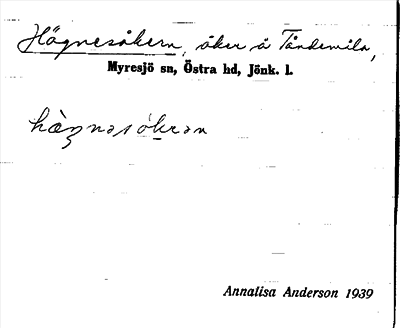 Hägnesåkern, åker å Tåndemåla,
Myresjö sn, Östra hd, Jönk. l.
Annalisa Anderson 1939